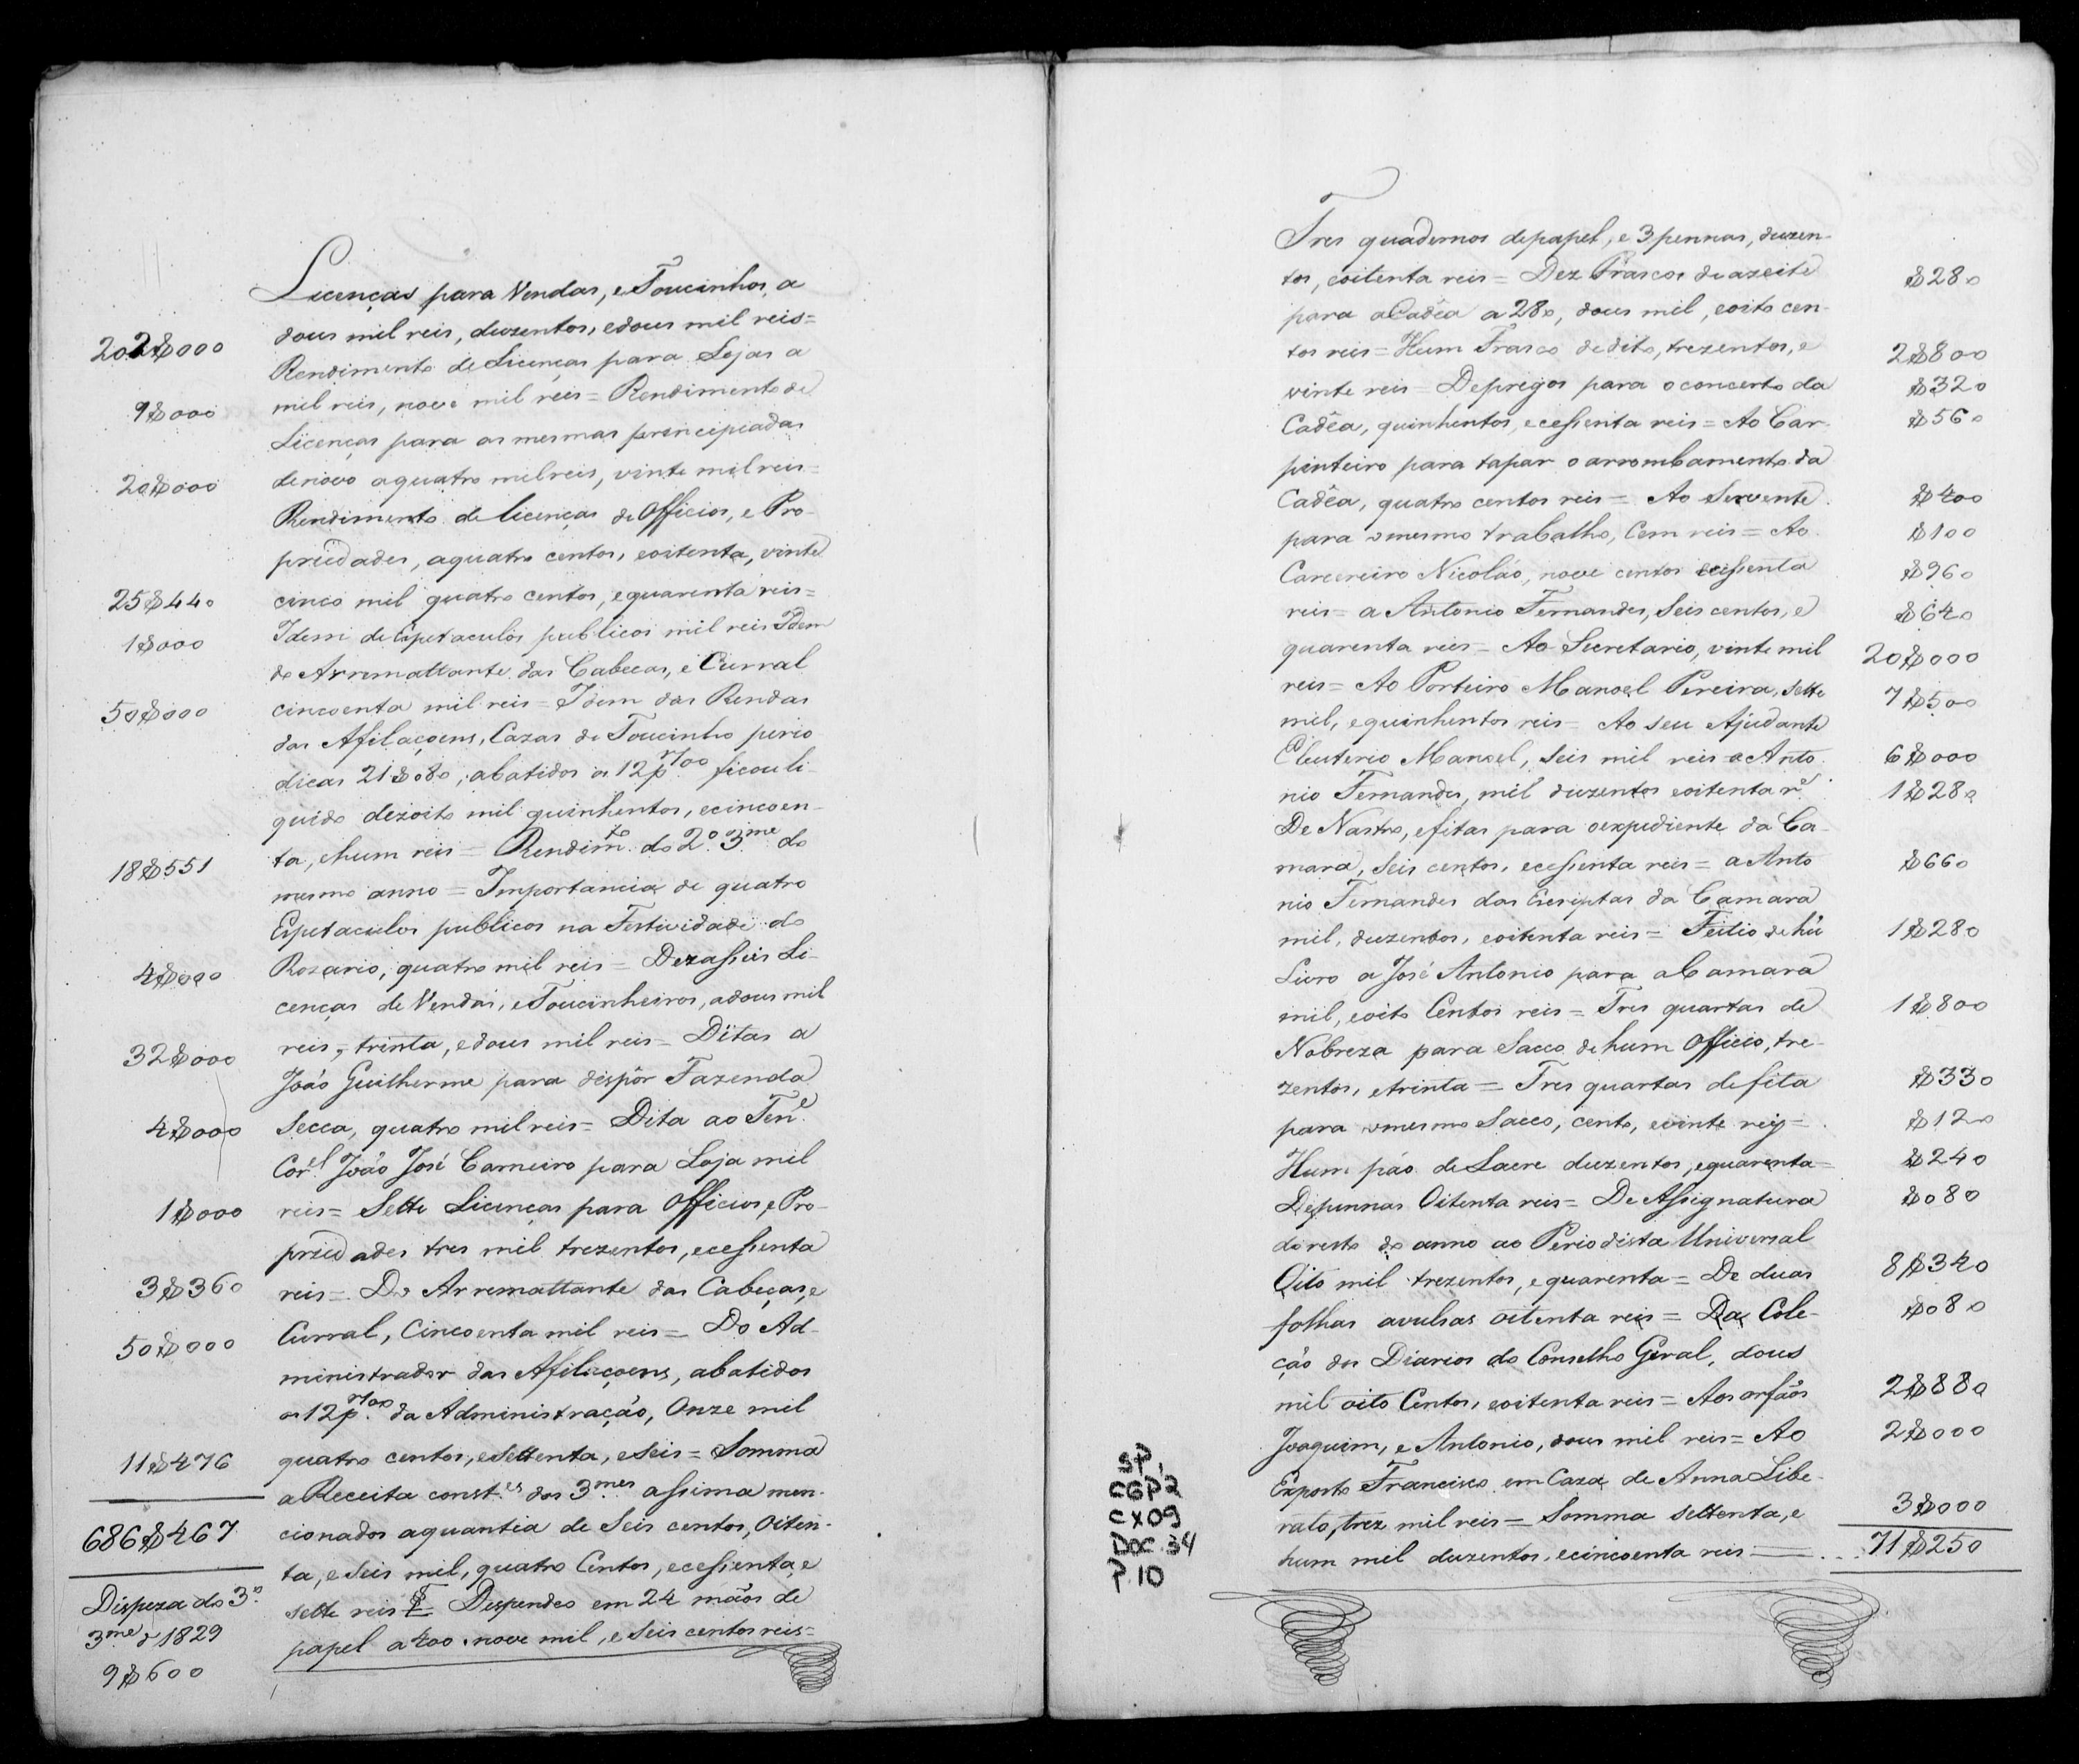 Licenças para Vendas, e Toucinhos, a
202$000 dous mil reis, duzentos, edous mil reis=
Rendimento de Licenças para Lojas a
9$000 mil reis, nove mil reis= Rendimento de
Licenças para as mesmas principiadas
20$000 denovo aquatro milreis, vinte mil reis=
Rendimento de licenças de Officios, e Pro-
priedades, aquatro centos, eoitenta, vinte
25$440 cinco mil quatro centos, equarenta reis=
1$000 Idem de Espetaculos publicos mil reis Idem
do Arremattante das Cabeças, e Curral
50$000 cincoenta mil reis= Idem das Rendas
das Afilaçoens, Cazas de Toucinho perio
dicas 21$080, abatidos os 12 p.r %00 ficou li-
quido dezoito mil quinhentos, ecincoen-
18$551 ta, ehum reis= Rendim.to do 2.º 3.me do
mesmo anno = Importancia de quatro
Espetaculos publicos na Festividade do
4$000 Rozario, quatro mil reis= Dezaseis Li-
cenças de Vendas, eToucinheiros, adous mil
32$000 reis, trinta, edous mil reis= Ditas a
João Guilherme para dispôr Fazenda
4$000 Secca, quatro mil reis= Dita ao Ten.e
Cor.el João José Carneiro para Loja mil
1$000 reis= Sette Licenças para Officios, e Pro-
priedades tres mil trezentos, ecessenta
3$360 reis= Do Arremattante das Cabeças, e
50$000 Curral, Cincoenta mil reis= Do Ad-
ministrador das Afilaçoens, abatidos
os 12 p.r %00 da Administração, Onze mil
11$476 quatro centos, esettenta, eseis = Somma
a Receita const.es dos 3.mes assima men-
686$467 cionados aquantia de Seis centos, Oiten-
ta, e seis mil, quatro Centos, ecessenta, e
Dispeza do 3.º sette reis Despendeo em 24 mãos de
3.me d 1829 papel a 400 nove mil, e Seis centos reis=
9$600
Tres quadernos depapel, e 3 pennas, duzen-
tos, eoitenta reis= Dez Frascos de azeite $280
para aCadêa a 280, dous mil, eoito cen-
tos reis= Hum Frasco dedito, trezentos, e 2$800
vinte reis= Depregos para oconcerto da $320
Cadêa, quinhentos, ecessenta reis= Ao Car- $560
pinteiro para tapar o arrombamento da
Cadêa, quatro centos reis= Ao Servente $400
para omesmo trabalho, Cem reis= Ao $100
Carcereiro Nicoláo, nove centos ecessenta $960
reis= a Antonio Fernandes, Seis centos, e $640
quarenta reis= Ao Secretario, vinte mil 20$000
reis= Ao Porteiro Manoel Pereira, sette 7$500
mil, equinhentos reis= Ao seu Ajudante
Eleuterio Manoel, Seis mil reis= a Anto 6$000
nio Fernandes, mil duzentos eoitenta r.s 1$280
De Nastro, efitas para oexpediente da Ca-
mara, Seis centos, ecessenta reis= a Anto $660
nio Fernandes das Escriptas da Camara
mil, duzentos, eoitenta reis= Feitio de hũ 1$280
Livro a José Antonio para aCamara
mil, eoito Centos reis= Tres quartas de 1$800
Nobreza para Sacco dehum Officio, tre-
zentos, etrinta= Tres quartas defita $330
para omesmo Sacco, cento, evinte reis= $120
Hum páo de Lacre duzentos, equarenta= $240
Depennas Oitenta reis= De Assignatura $080
doresto do anno ao Periodista Universal
Oito mil trezentos, equarenta= De duas 8$340
folhas avulsas oitenta reis= Da Cole- $080
ção dos Diarios do Conselho Geral, dous
mil oito Centos, eoitenta reis= Aos orfãos 2$880
Joaquim, e Antonio, dous mil reis= Ao 2$000
Exposto Francisco em Caza de Anna Libe-
rato, trez mil reis= Somma settenta, e 3$000
hum mil duzentos, ecincoenta reis 71$250
SP,
CGP2
CX09
DOC.34
P.10